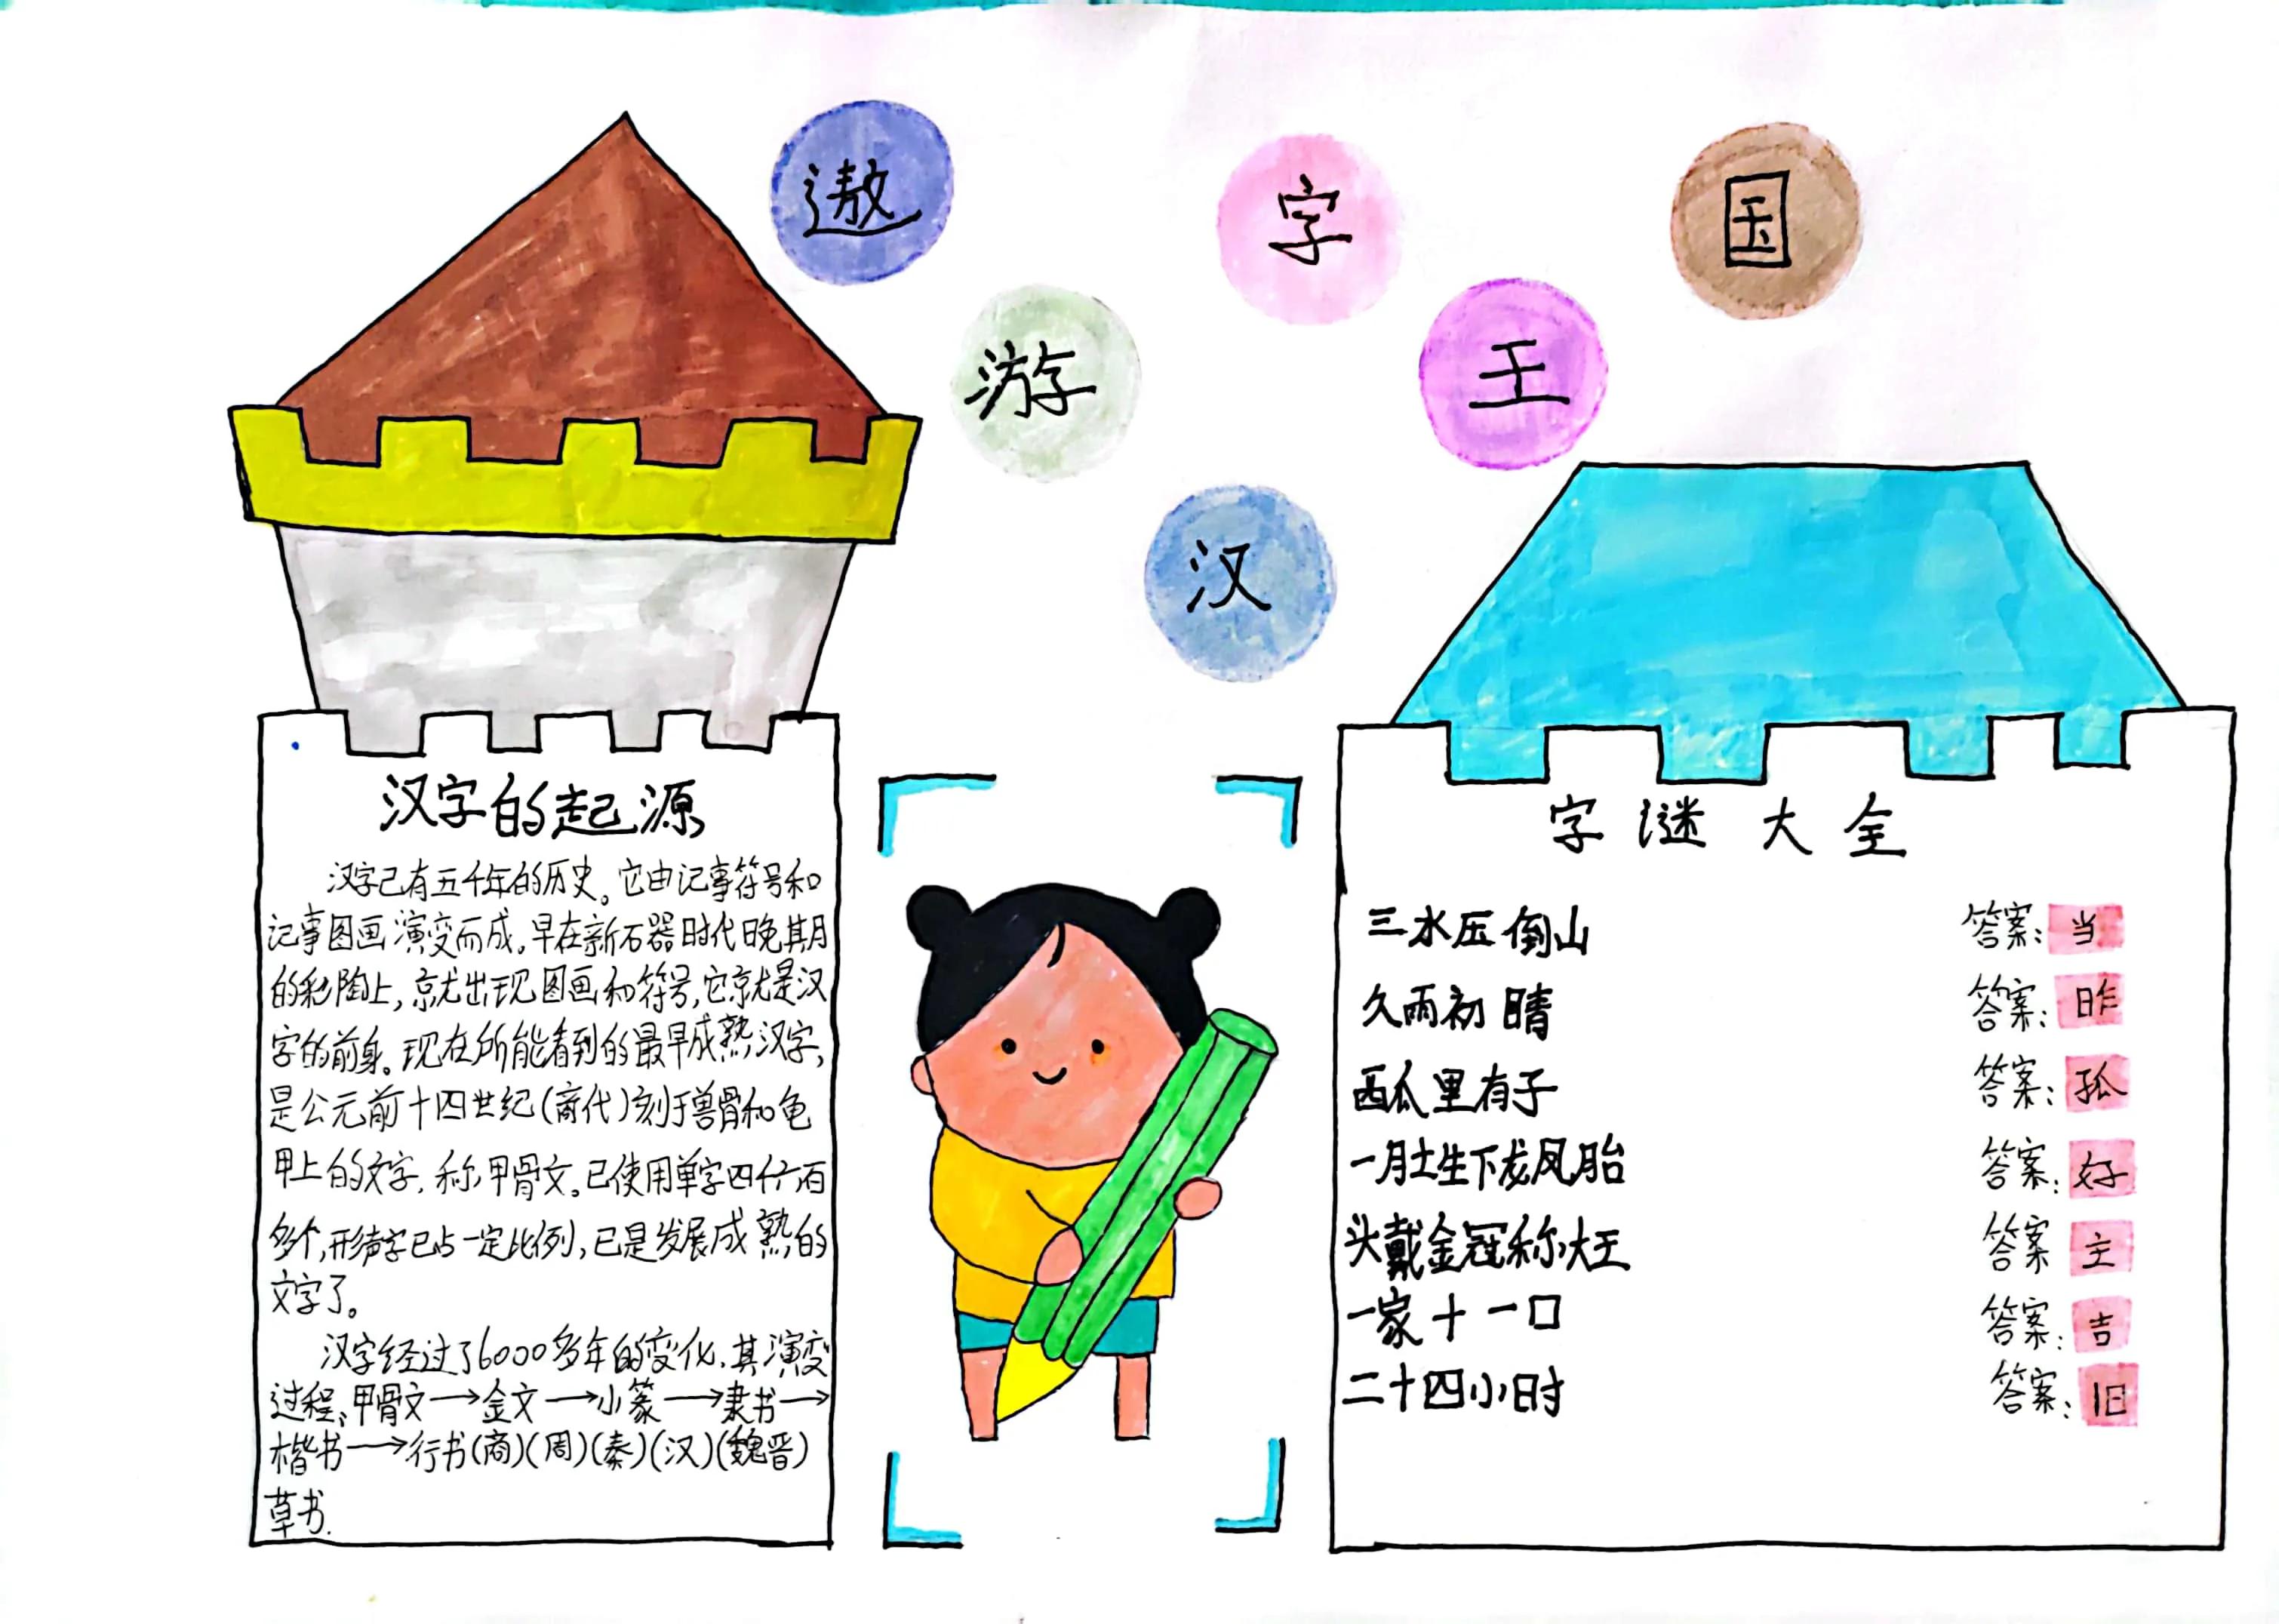 遨游汉字王国
汉字的起源
汉字已有五千年的历史。它由记事符号和
记事图画演变而成。早在新石器时代晚期
的彩陶上,就出现图画和符号,它就是汉
字的前身。现在所能看到的最早成熟汉字,
是公元前十四世纪(商代)刻于兽骨和龟
甲上的文字,称甲骨文。已使用单字四仟六百
多个,形声字已占一定比例,已是发展成熟的
文字了。
汉字经过了6000多年的变化,其演变
过程:甲骨文→金文→小篆→隶书→
楷书→行书(商)(周)(秦)(汉)(魏晋)
草书.
字谜大全
三水压倒山 答案:当
久雨初晴 答案:昨
西瓜里有子 答案:孤
一月土生下龙凤胎 答案:好
头戴金冠称大王 答案 主
一家十一口 答案:吉
二十四小时 答案:旧